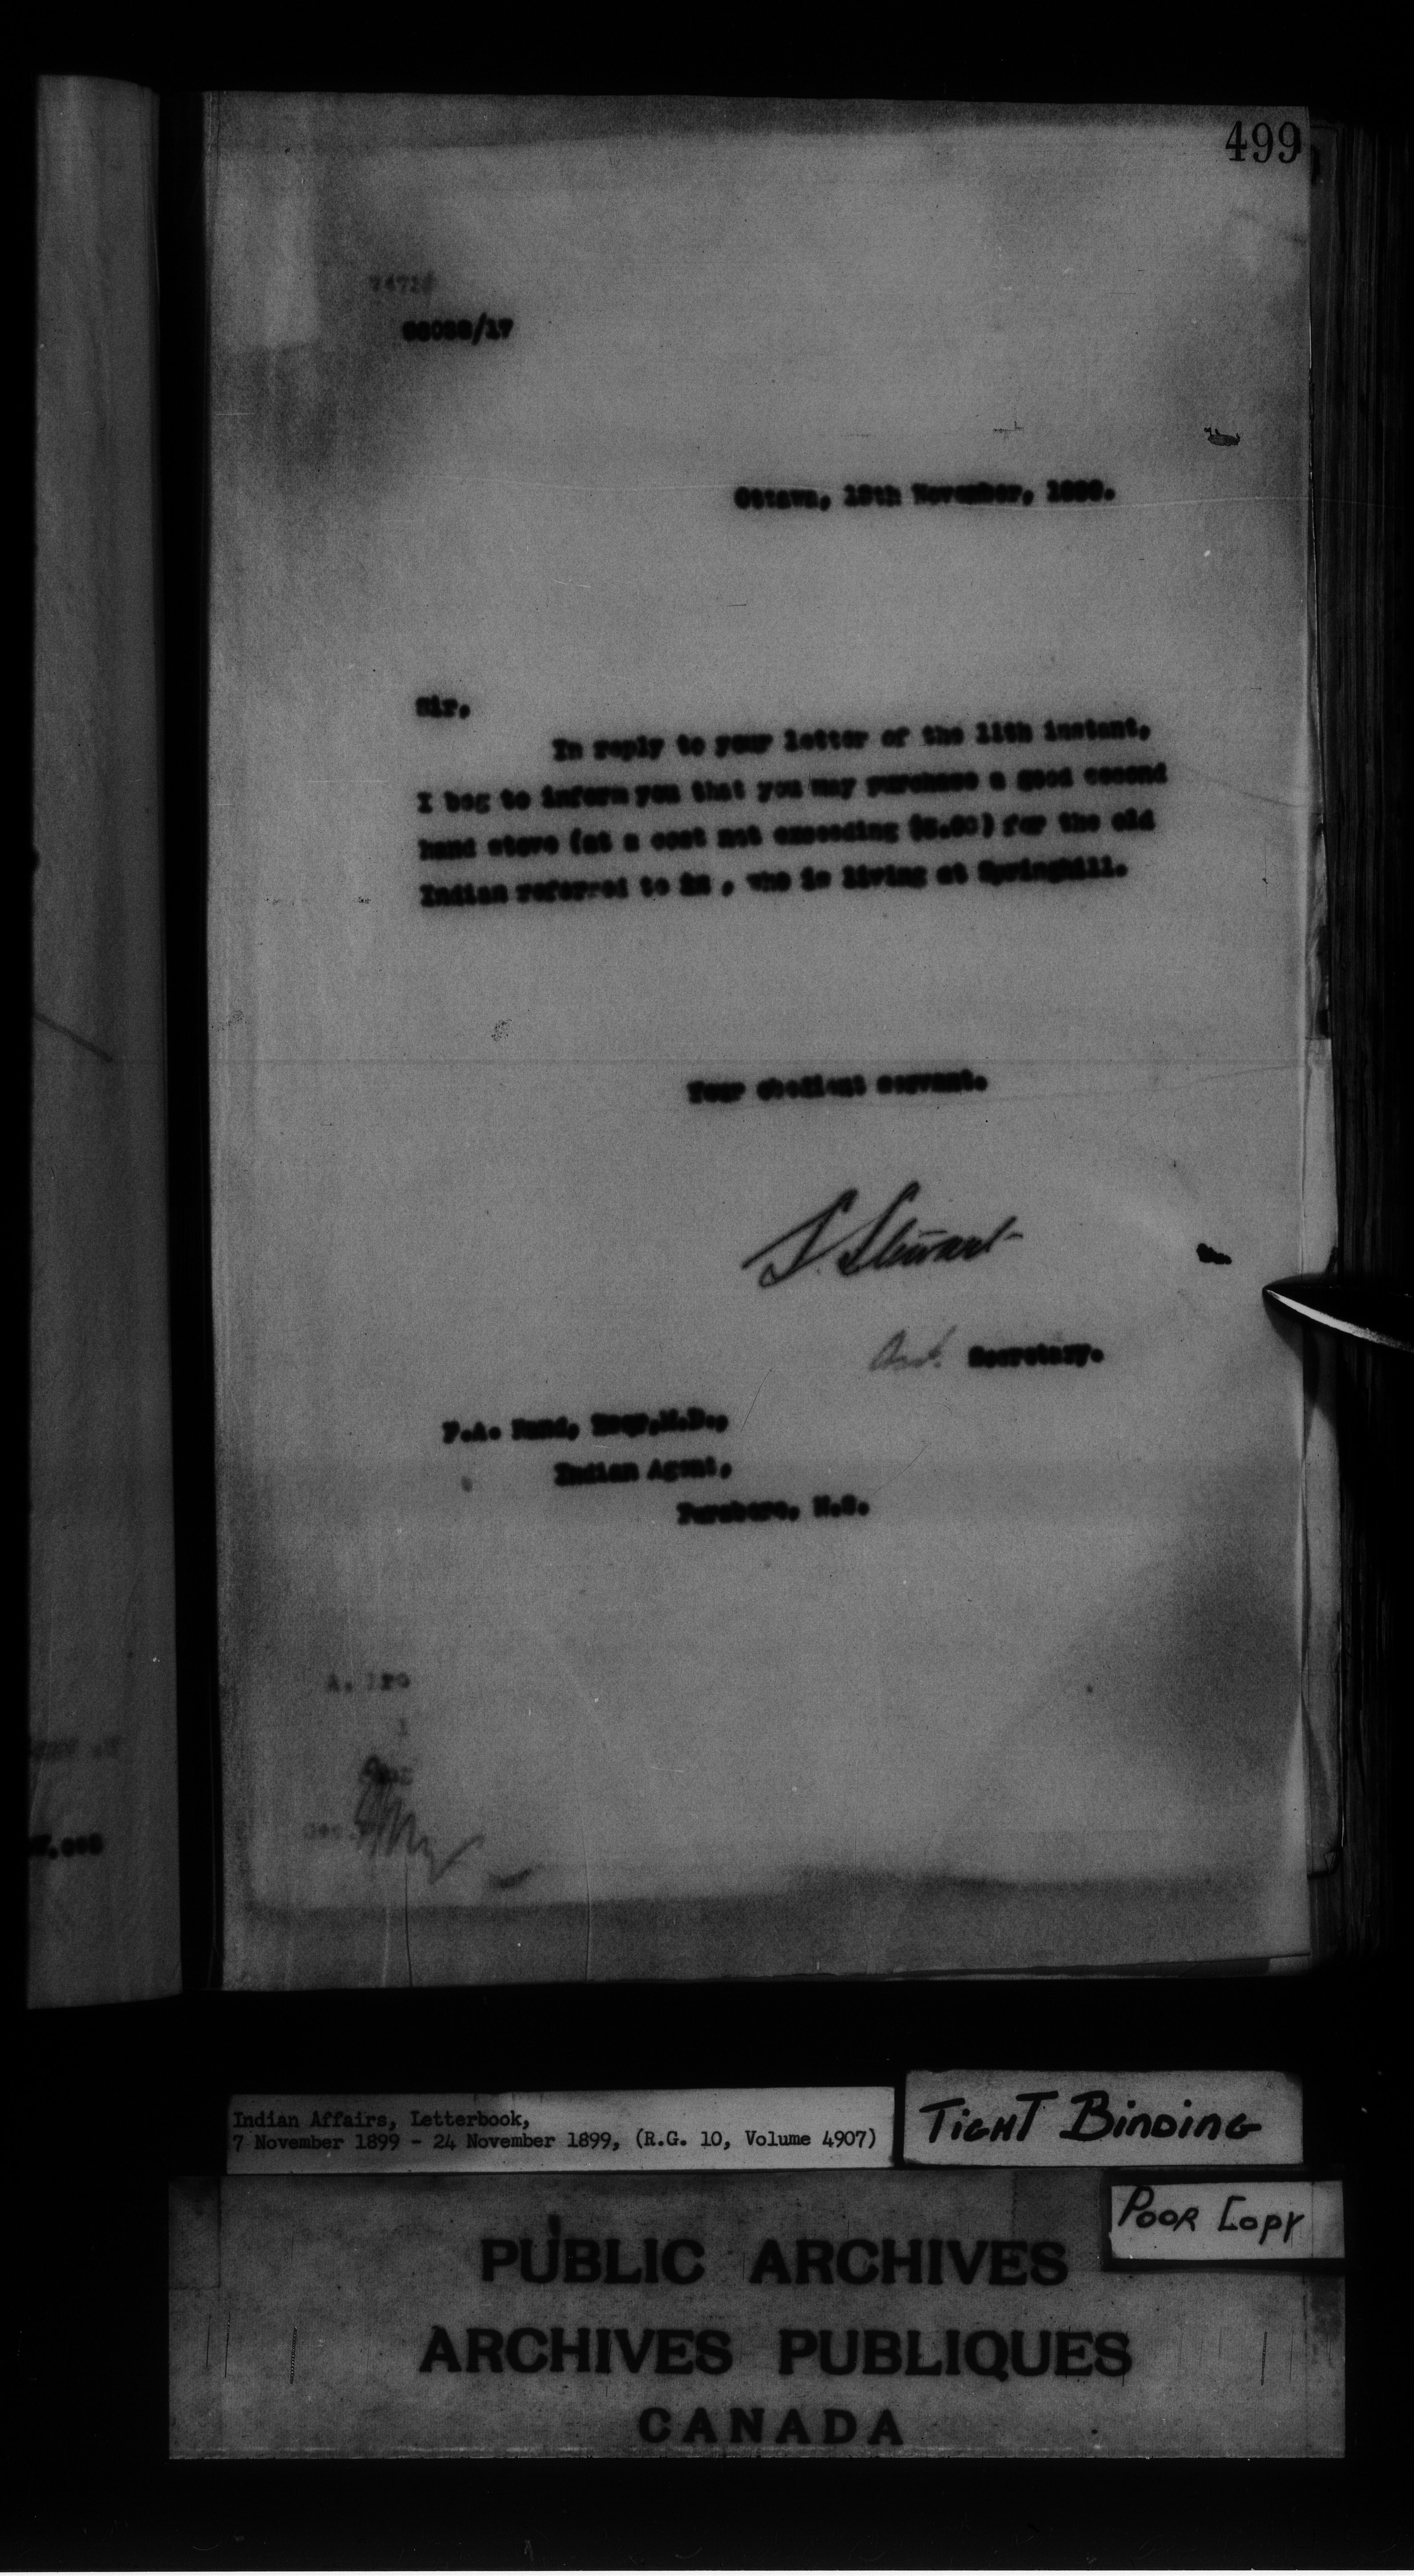 499
Ottawa, November, 1899.
Sir,
In reply to your letter of the 11th instant,
I beg to inform you that you may purchase a good second
hand stove (at a cost not exceeding $5.00) for the old
Indian referred to in , who is living at Springhill.
Your obedient servant.
S. Stewart
Asst. Secretary.
F.A. Rand, Esqr,M.D.,
Indian Agent,
Parsboro, N.S.
Indian Affairs, Letterbook,
7 November 1899 - 24 November 1899, (R.G. 10, Volume 4907)
TIGHT BINDING
POOR COPY
PUBLIC ARCHIVES
ARCHIVES PUBLIQUES
CANADA